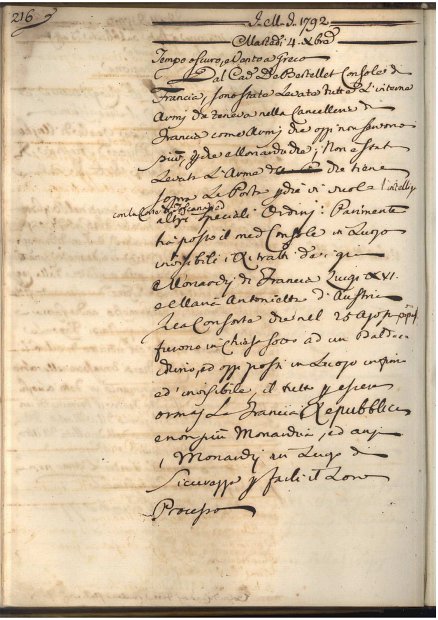 216
J. M. J. 1792
Martedi 4. Xbre
Tempo oscuro, e Vento a Greco
Dal Cad. De Bostellet Console di
Francia, sono state Levate tutte L'interne
Armi che teneva nella Cancelleria di
Francia come Armi che oggi non servono
più, che Monarchia; Non e stata
Levata L'Arma che tiene
sopra La Porta
con la Corte di Toscana ed
altri speciali Ordini: Parimente
ha posto il med. Console in Luogo
invisibile i Ritratti de i
Monarchi di Francia Luigi XVI.
e Maria Antonietta d'Austria
Rea Consorte che nel 25 Agosto
furono in Chiesa sotto ad un Baldac
chino, ed oggi posti in Luogo
ed' invisibile, il tutto p essere
ormaj La Francia Repubblica
e non più Monarchia, ed anzi
i Monarchi in Luogo di
Sicurezza p farli il Loro
Processo